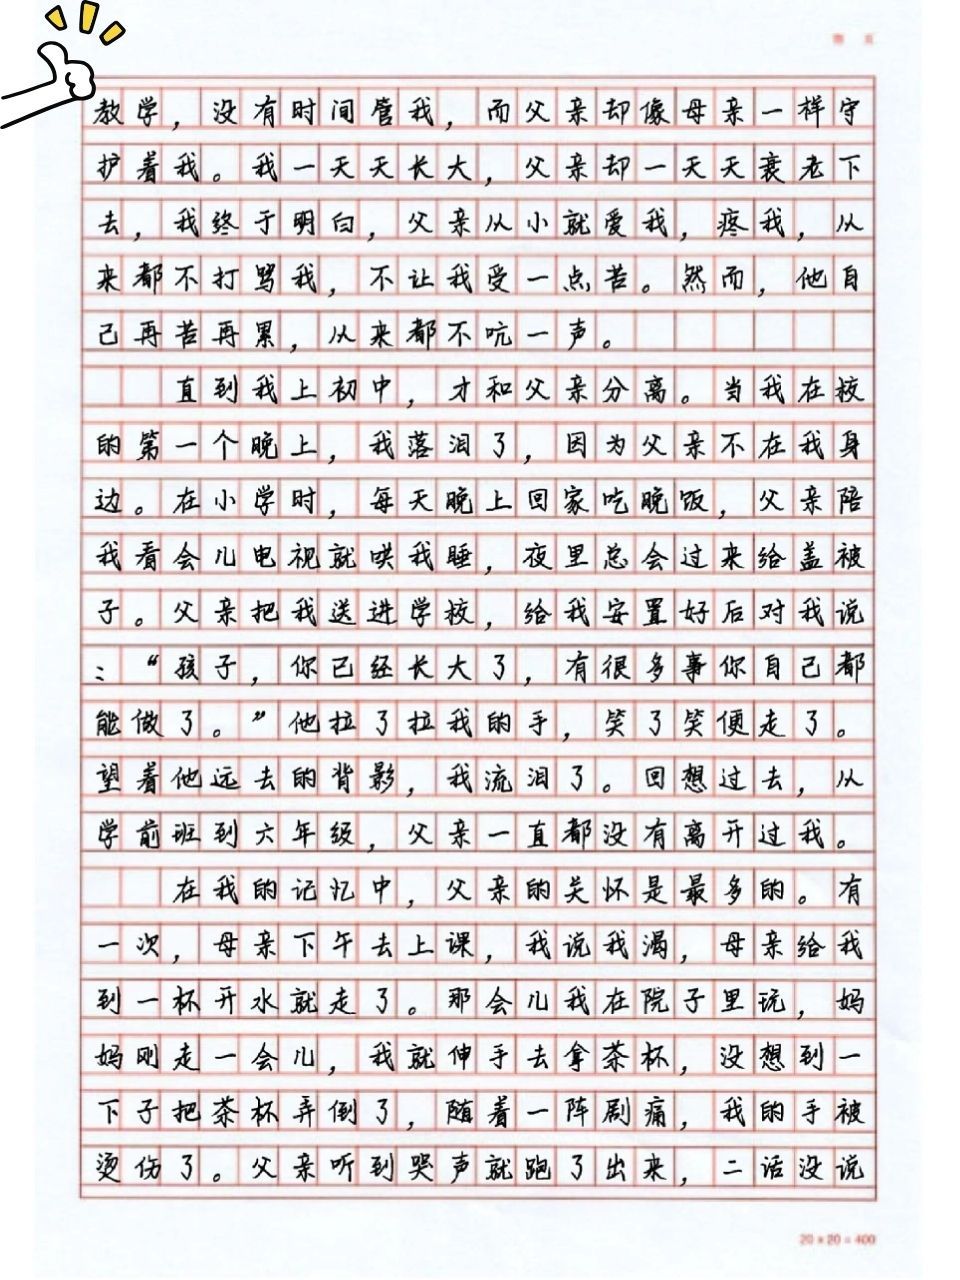 第 页
教学，没有时间管我，而父亲却像母亲一样守
护着我。我一天天长大，父亲却一天天衰老下
去，我终于明白，父亲从小就爱我，疼我，从
来都不打骂我，不让我受一点苦。然而，他自
己再苦再累，从来都不吭一声。
直到我上初中，才和父亲分离。当我在校
的第一个晚上，我落泪了，因为父亲不在我身
边。在小学时，每天晚上回家吃晚饭，父亲陪
我看会儿电视就哄我睡，夜里总会过来给盖被
子。父亲把我送进学校，给我安置好后对我说
：“孩子，你已经长大了，有很多事你自己都
能做了。”他拉了拉我的手，笑了笑便走了。
望着他远去的背影，我流泪了。回想过去，从
学前班到六年级，父亲一直都没有离开过我。
在我的记忆中，父亲的关怀是最多的。有
一次，母亲下午去上课，我说我渴，母亲给我
到一杯开水就走了。那会儿我在院子里玩，妈
妈刚走一会儿，我就伸手去拿茶杯，没想到一
下子把茶杯弄倒了，随着一阵剧痛，我的手被
烫伤了。父亲听到哭声就跑了出来，二话没说
20×20=400